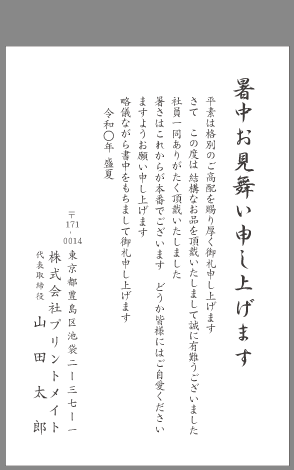 暑中お見舞い申し上げます
平素は格別のご高配を賜り厚く御礼申し上げます
さて　この度は 結構なお品を頂戴いたしまして誠に有難うございました
社員一同ありがたく頂戴いたしました
暑さはこれからが本番でございます　どうか皆様にはご自愛ください
ますようお願い申し上げます
略儀ながら書中をもちまして御礼申し上げます
令和〇年 盛夏
〒171-0014
東京都豊島区池袋二ー三七ー一
株式会社プリントメイト
代表取締役　山田太郎